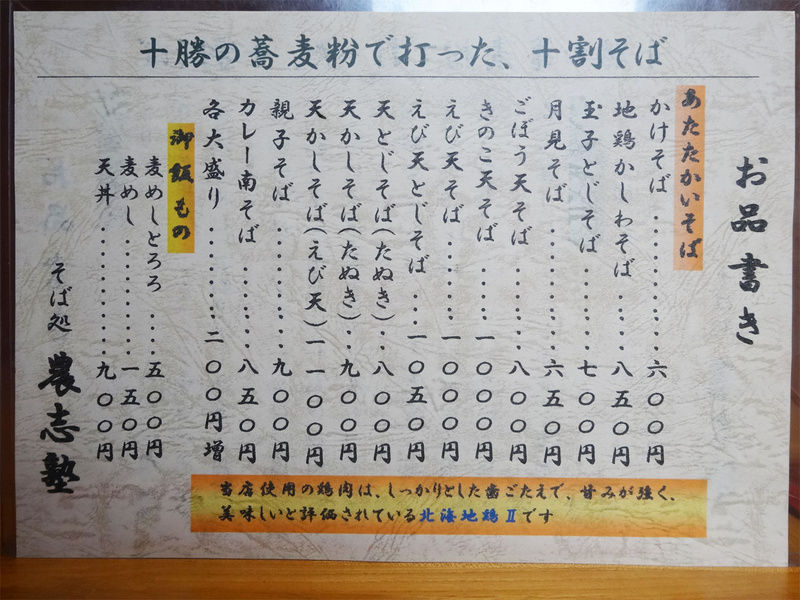 十勝の蕎麦粉で打った、十割そば
お品書き
あたたかいそば
かけそば…………六〇〇円
地鶏かしわそば……八五〇円
玉子とじそば………七〇〇円
月見そば…………六五〇円
ごぼう天そば………八〇〇円
きのこ天そば……一〇〇〇円
えび天そば………一〇〇〇円
えび天とじそば……一〇五〇円
天とじそば(たぬき)…八〇〇円
天かしそば(たぬき)…九〇〇円
天かしそば(えび天)一一〇〇円
親子そば…………九〇〇円
カレー南そば………八五〇円
各大盛り…………二〇〇円増
御飯もの
麦めしとろろ……五〇〇円
麦めし…………一五〇円
天丼……………九〇〇円
そば処 農志塾
当店使用の鶏肉は、しっかりとした歯ごたえで、甘みが強く、
美味しいと評価されている北海地鶏Ⅱです